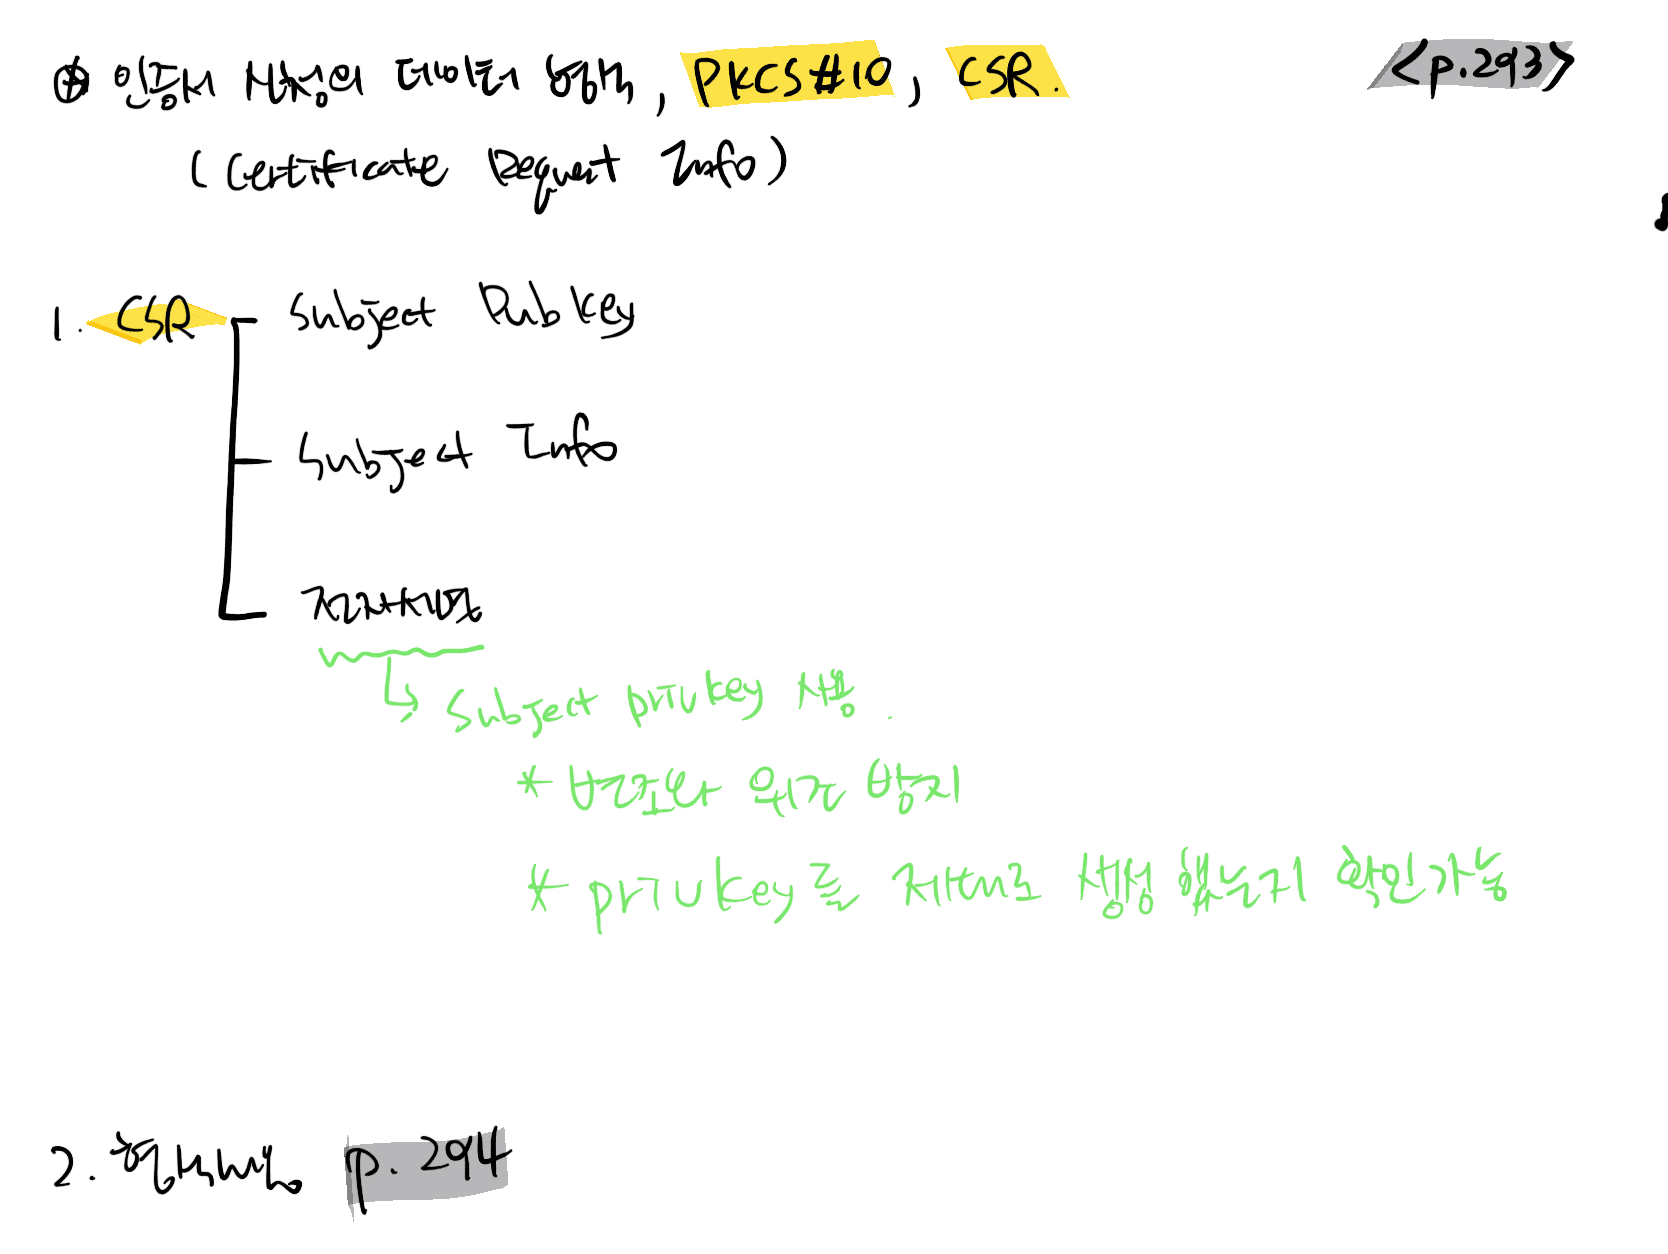 ⊕ 인증서 신청의 데이터 형식, PKCS#10, CSR. <p.293>
(Certificate Request Info)
1. CSR Subject Pub Key
Subject Info
전자서명
↳ Subject priv key 사용.
* 변조와 위조 방지
* priv key를 제대로 생성했는지 확인가능
2. 형식내용 p. 294